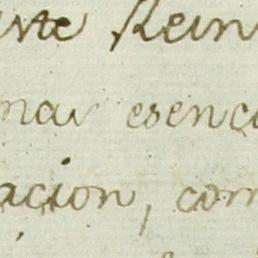 este Rein
mas esenc
acion, com